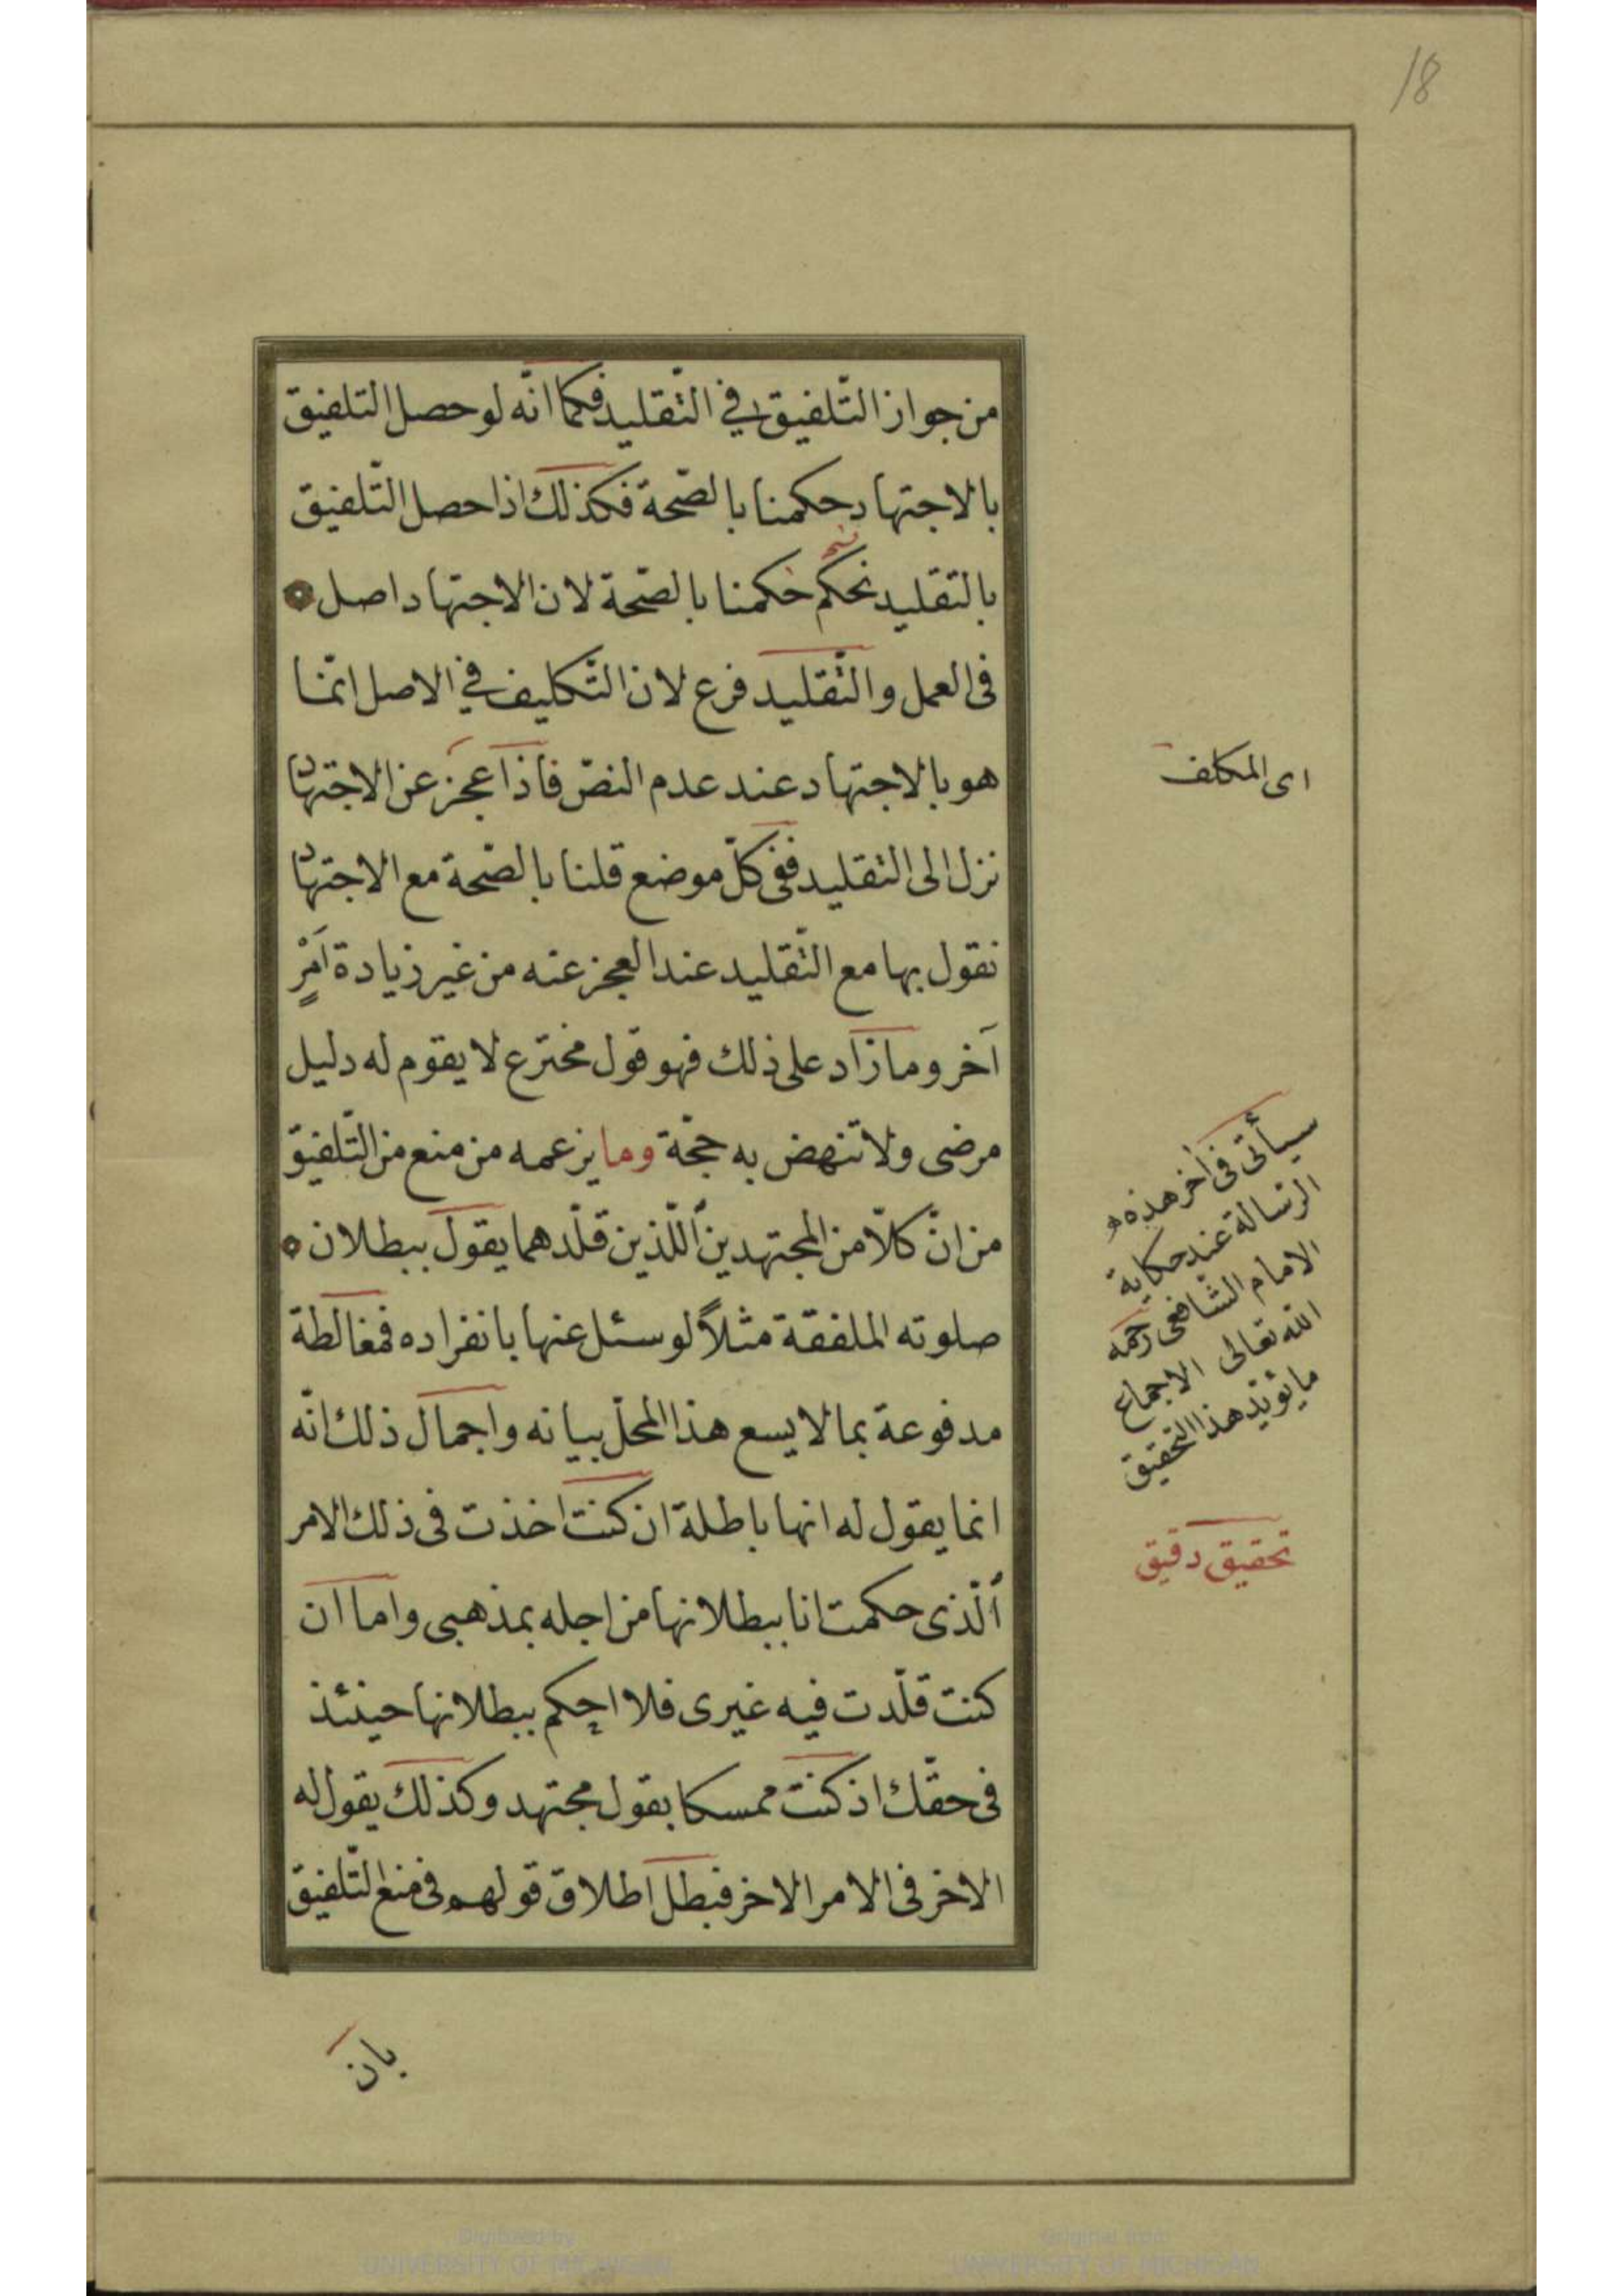 18
من جواز التّلفيق في التّقليد فكما انّه لو حصل التلفيق
بالاجتهاد حكمنا بالصّحة فكذلك اذا حصل التّلفيق
بالتقليد نحكم حكمنا بالصّحة لان الاجتهاد اصل
فى العمل والتّقليد فرع لان التّكليف في الاصل انّما
هو بالاجتهاد عند عدم النصّ فاذا عجز عن الاجتهاد
نزل الى التقليد ففى كلّ موضع قلنا بالصّحة مع الاجتهاد
نقول بها مع التّقليد عند العجز عنه من غير زيادة اَمْرٍ
آخر وما زاد على ذلك فهو قول مخترع لا يقوم له دليل
مرضى ولا تنهض به حجّة وما يزعمه من منع من التّلفيق
من انّ كلّا من المجتهدين أللّذين قلّدهما يقول ببطلان
صلوته الملفقة مثلاً لو سئل عنها بانفراده فمغالطة
مدفوعة بما لا يسع هذا المحلّ بيانه واجمال ذلك انّه
انما يقول له انها باطلة ان كنت اخذت فى ذلك الامر
ألّذى حكمت انا ببطلانها من اجله بمذهبى واما ان
كنت قلّدت فيه غيرى فلا احكم ببطلانها حينئذ
فى حقّك اذ كنت ممسكا بقول مجتهد وكذلك يقول له
الاخر فى الامر الاخر فبطل اطلاق قولهم فى منع التّلفيق
بان
اى المكلف
سيأتى فى اخر هذه
الرّسالة عند حكاية
الامام الشّافعى رحمه
الله تعالى الاجماع
ما يؤيّد هذا التّحقيق
تحقيق دقيق
Digitized by
UNIVERSITY OF MICHIGAN
Original from
UNIVERSITY OF MICHIGAN